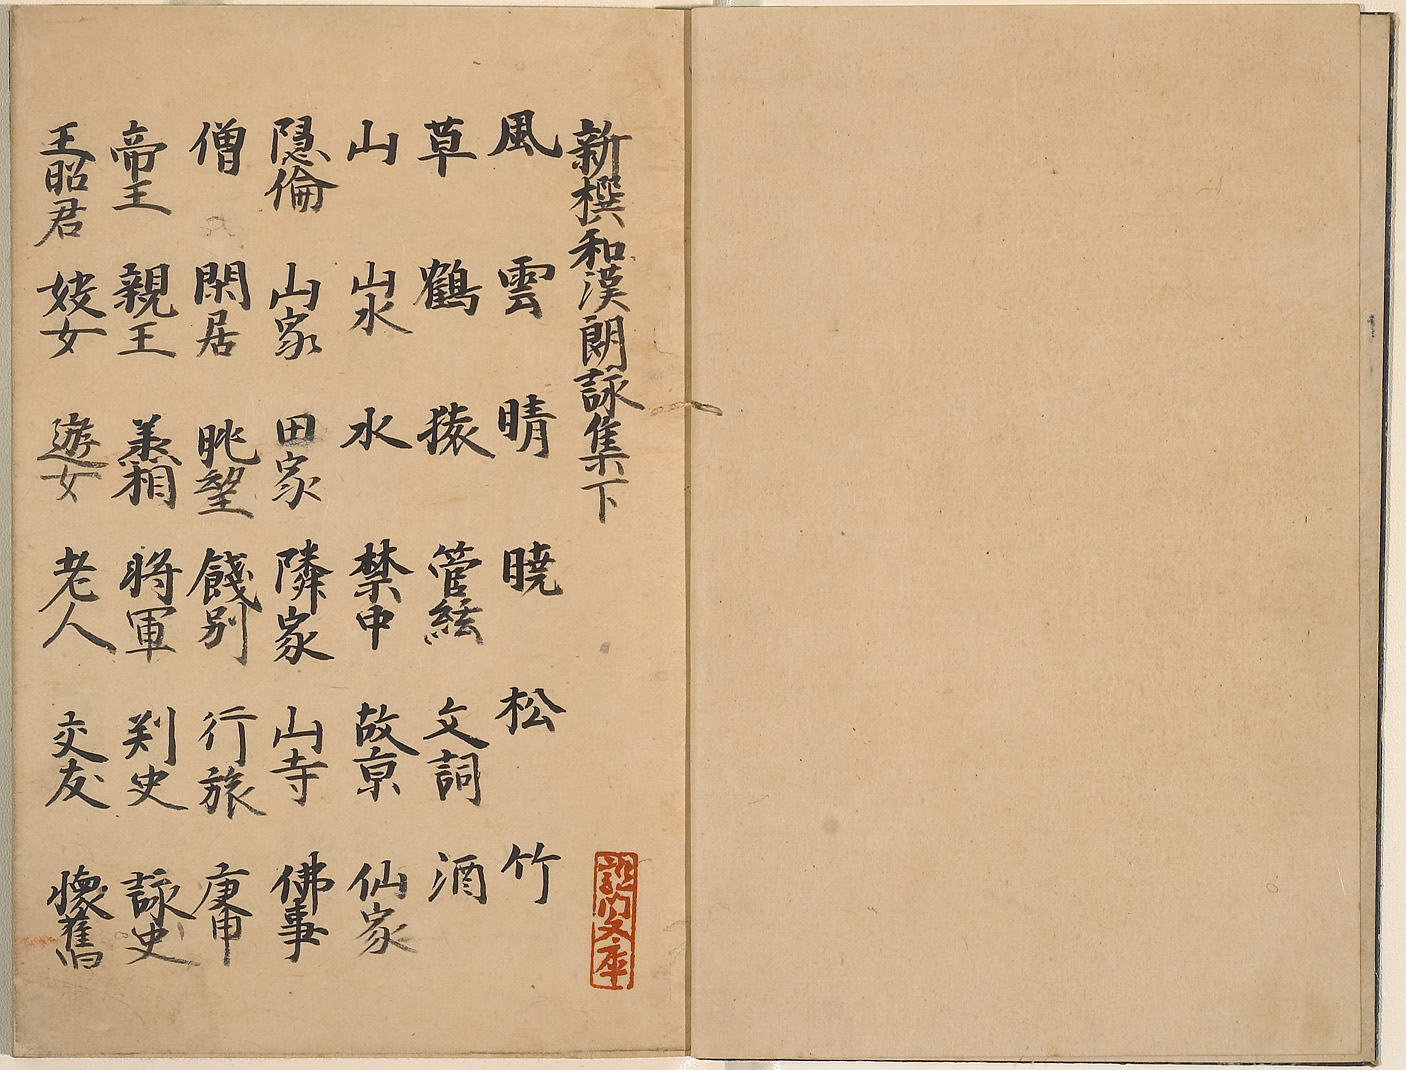 新撰和漢朗詠集下
風 雲 晴 暁 松 竹
草 鶴 猿 管絃 文詞 酒
山 山水 水 禁中 故京 仙家
隠倫 山家 田家 隣家 山寺 佛事
僧 閑居 眺望 餞別 行旅 庚申
帝王 親王 丞相 将軍 刺史 詠史
王昭君 妓女 遊女 老人 交友 懐舊